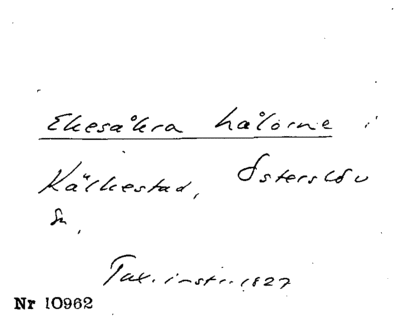 Ekesåkra hålorne i
Kälkestad, Österslöv
sn.
Tax. instr. 1827
Nr 10962